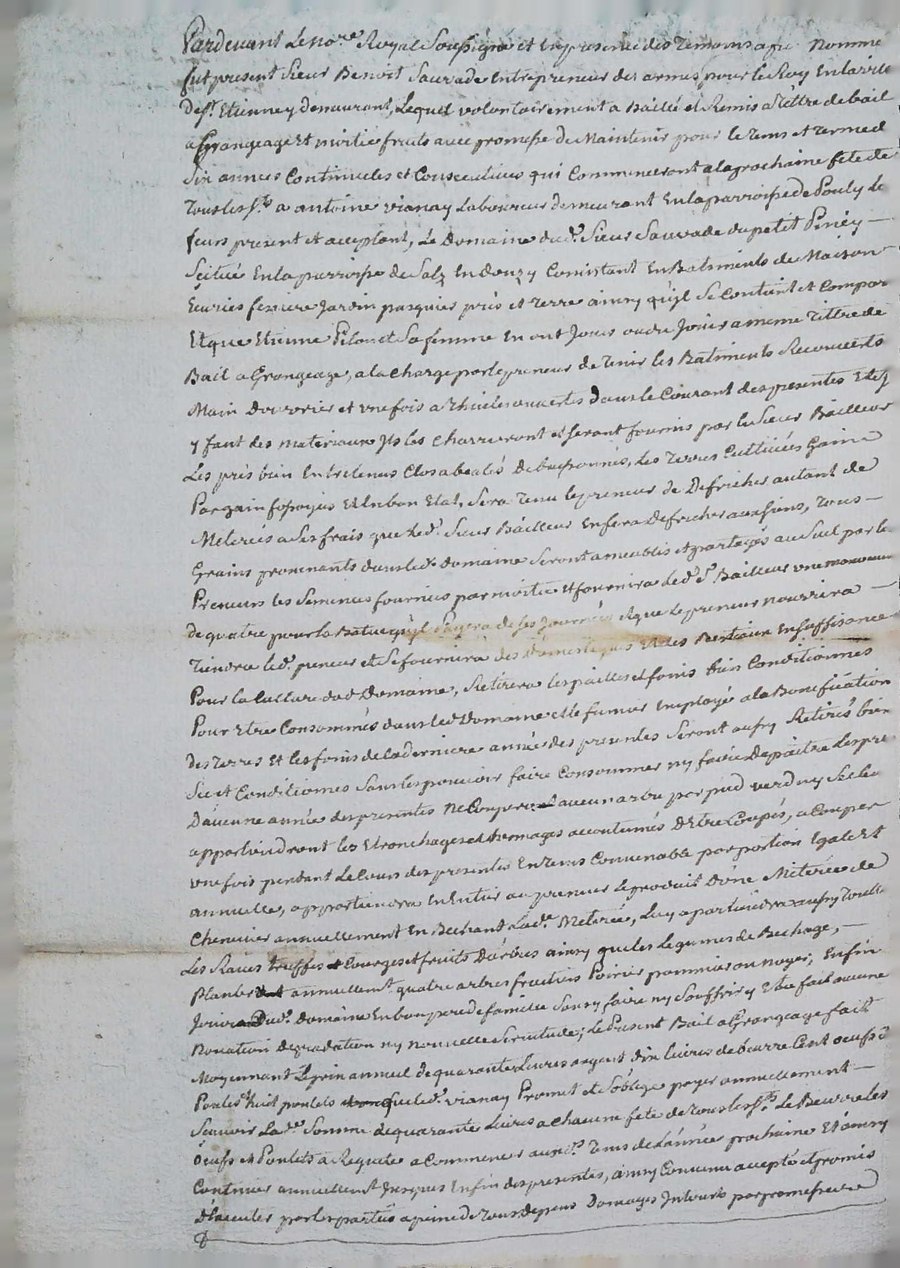 Pardevant Le no.re Royal Soussigné et En presence des Temoins apres Nommé
fut present Sieur Benoit Sauvade Entrepreneur des armes pour le Roy En la ville
de St. Etienne y demeurant, Lequel volontairement a Baillé et Remis a Tittre de bail
a Grangeage Et moitié fruits avec promesse de Maintenir pour le tems et terme d
Six années Continuelles et Consecutives qui Commenceront a la prochaine fête de
Tous les Sts. a antoine vianay Laboureur demeurant En la parroisse de Pouly le
feurs present et acceptant, Le Domaine dud. Sieur Sauvade du petit Piney
Scitué En la parroisse de Salz En Donzy Consistant En Batiments de Maison
Ecuries feniere Jardin pasquier prés et Terre ainsy qu'il Se Contient et Compor
Et que Etienne Pilon et Sa femme En ont Jouis ou du Jouir a meme Tittre de
Bail a Grangeage, a la Charge par le preneur de Tenir les Batiments Recouverts
Main Douvrier et une fois a Thuiles ouvertes dans le Courant des presentes Et Sj
y faut des materiaux Ils les Charrieront et Seront fournis par le Sieur Bailleur
Les prés bien Entretenus Clos abealés Debuissonnés, Les Terres Cultivées Gain
Par gain fossoyés Et En bon Etat, Sera Tenu le preneur de Defricher autant de
Meterées a Ses frais que led. Sieur Bailleur En fera Defricher aux Siens, Tous
Grains provenants dans led. domaine Seront ameublis et partagés au Suel par le
Preneur les Semences fournies par moitié et fournira led. Sr. Bailleur une manoeuvre
de quatre pour la Batue qu'il payera de Ses Journées et que le preneur nourrira
Tiendra led. preneur et Se fournira des Domestiques Et des Bestiaux En Suffisance
Pour la Culture dud. Domaine, Retirera les pailles et foins bien Conditionnés
Pour Etre Consommés dans led. Domaine et le fumier Employé a la Bonification
des Terres Et les foins de la derniere année des presentes Seront aussy Retirés bien
Sec et Conditionnés Sans les pouvoir faire Consommer ny faire Depaitre les prés
D'aucune année des presentes Ne Coupera aucun arbre par pied verd ny Sec luy
appartiendront les Etronchages et Ebernages accoutumés D'Etre Coupés, a Couper
une fois pendant le Cours des presentes En tems Convenable par portion Egale Et
annuelle, appartiendra En Entier au preneur le produit D'une Meterée de
Chenevier annuellement En Bechant Lad. Meterée, Luy apartiendra aussy Toutte
Les Raves truffes Courges et fruits D'arbres ainsy que les Legumes de Bechage,
Plantera annuellemt. quatre arbres fruitiers Poirier pommier ou noyer, Enfin
Jouira Dud. Domaine En bon pere de famille Sans y faire ny Souffrir y Etre fait aucune
Novation Degradation ny nouvelle Servitude; Le Present Bail a Grangeage fait
Moyennant Le prix annuel de quarante Livres argent dix Livres de beurre Cent oeufs &
Poulets huit poulets que led. vianay Promet et S'oblige payer annuellement
Scavoir Lad. Somme de quarante Livres a Chacune fête de Tous les Sts. Le Beurre les
Oeufs et Poulets a Requete a Commencer aux d. Tems de L'année prochaine Et ainsy
Continuer annuellemt. Jusques En fin des presentes, ainsy Convenu accepté et promis
par les parties a peine de Tous depens Domages Interests par promesse